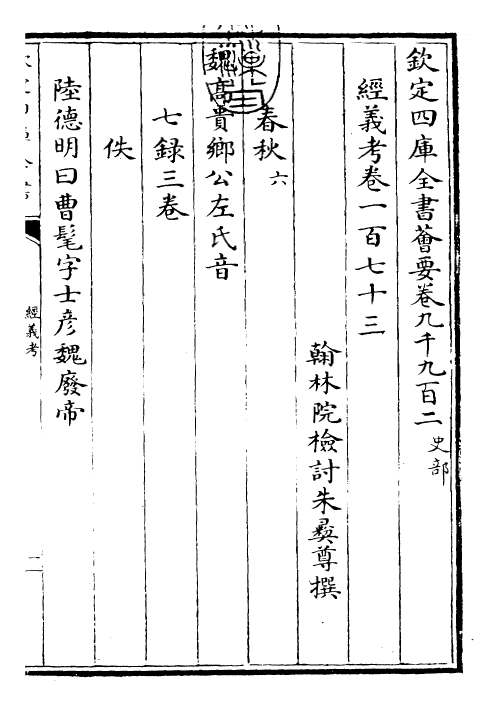 欽定四庫全書薈要卷九千九百二 史部
經義考卷一百七十三
翰林院檢討朱彞尊撰
春秋 六
魏高貴鄉公左氏音
七錄三卷
佚
陸德明曰曹髦字士彦魏廢帝
經義考